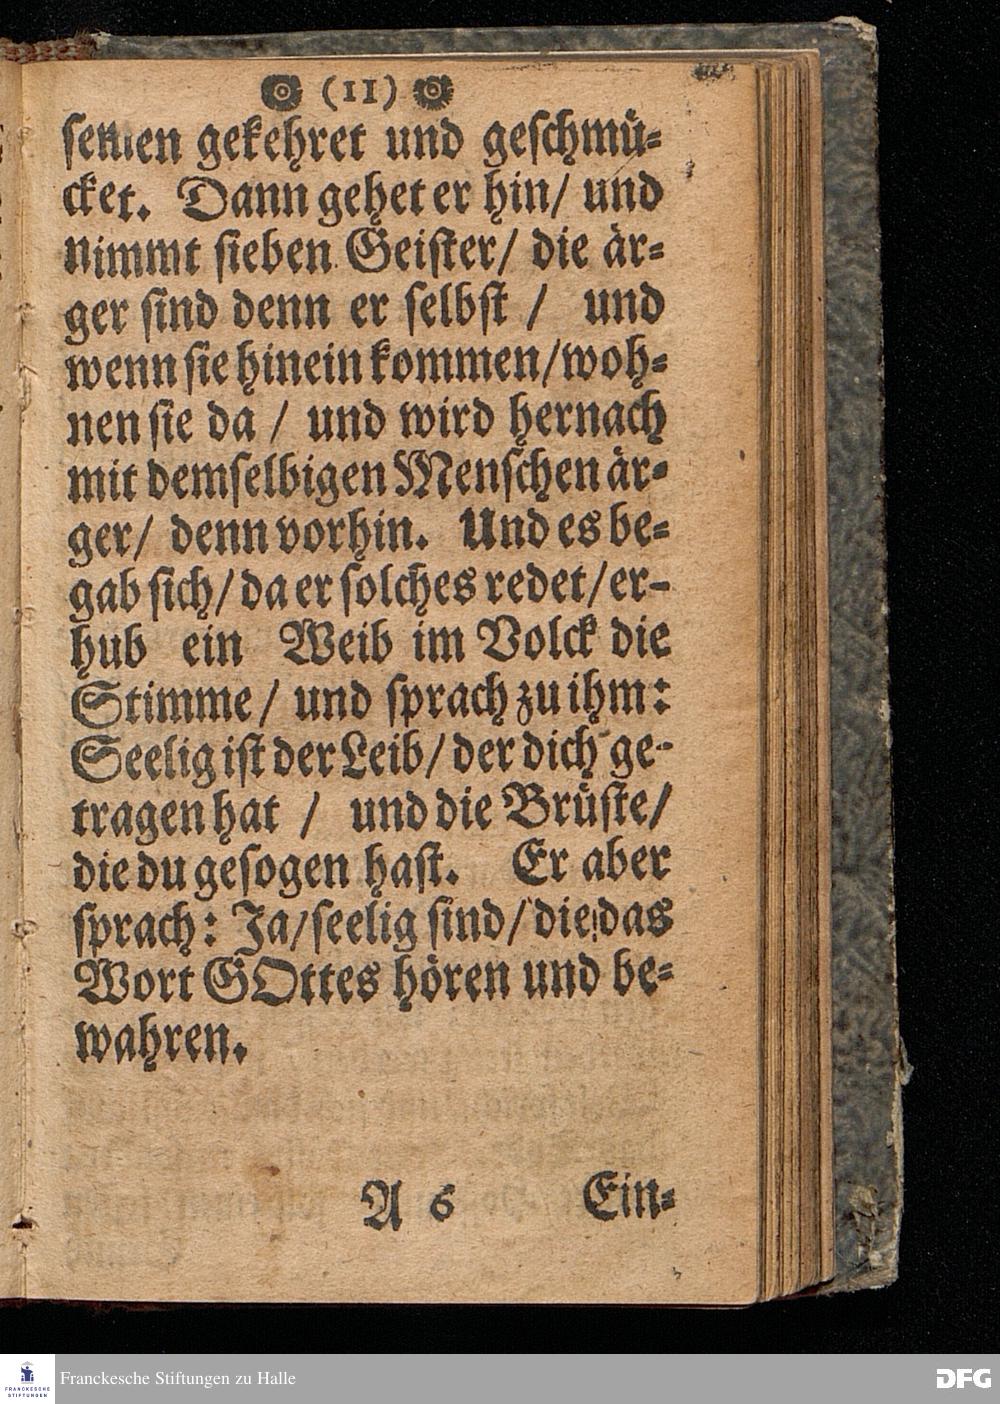 (11)
semen gekehret und geschmü-
cket. Dann gehet er hin/ und
nimmt sieben Geister/ die är-
ger sind denn er selbst / und
wenn sie hinein kommen/ woh-
nen sie da / und wird hernach
mit demselbigen Menschen är-
ger/ denn vorhin. Und es be-
gab sich/ da er solches redet/ er-
hub ein Weib im Volck die
Stimme/ und sprach zu ihm:
Seelig ist der Leib/ der dich ge-
tragen hat / und die Brüste/
die du gesogen hast. Er aber
sprach: Ja/ seelig sind/ die das
Wort GOttes hören und be-
wahren.
A 6 Ein-
FRANCKESCHE STIFTUNGEN
Franckesche Stiftungen zu Halle
DFG